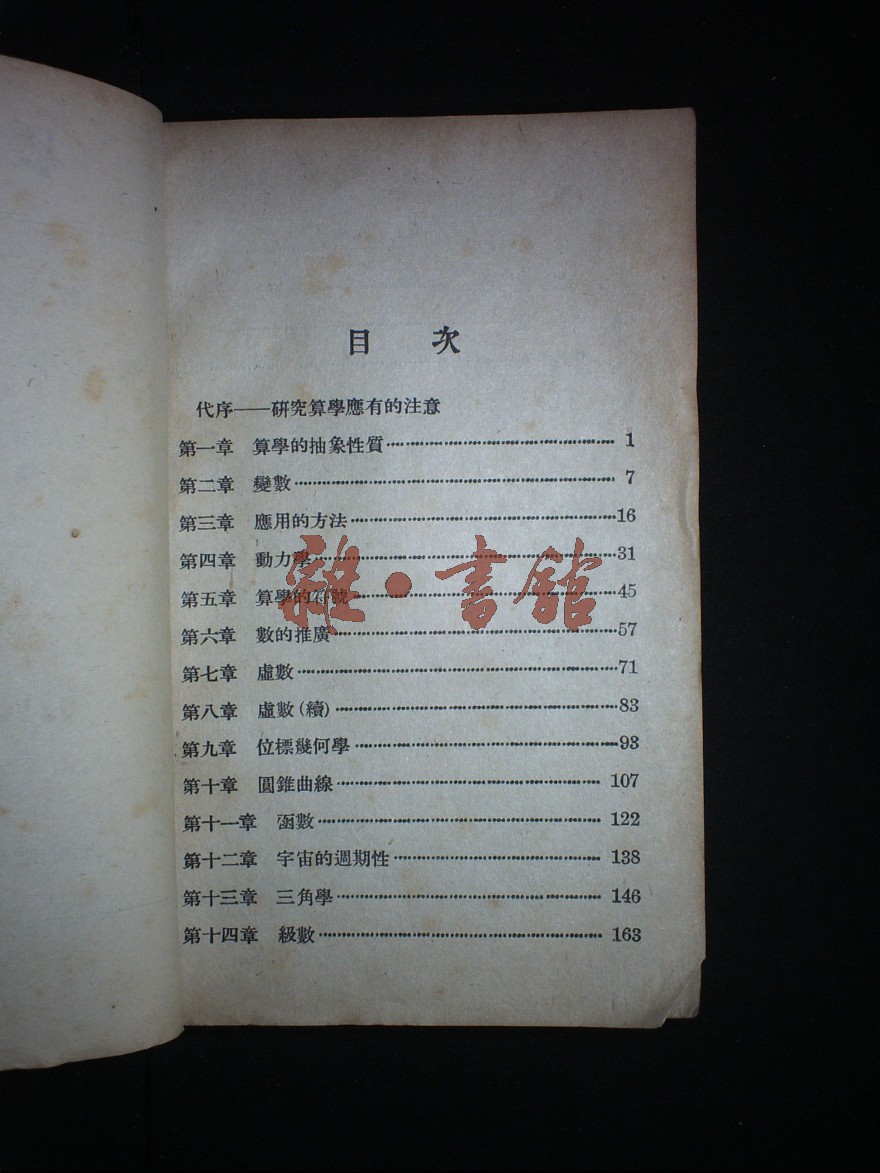 目 次
代序——研究算學應有的注意
第一章 算學的抽象性質 1
第二章 變數 7
第三章 應用的方法 16
第四章 動力學 31
第五章 算學的符號 45
第六章 數的推廣 57
第七章 虛數 71
第八章 虛數(續) 83
第九章 位標幾何學 93
第十章 圓錐曲線 107
第十一章 函數 122
第十二章 宇宙的週期性 138
第十三章 三角學 146
第十四章 級數 163
雜·書館